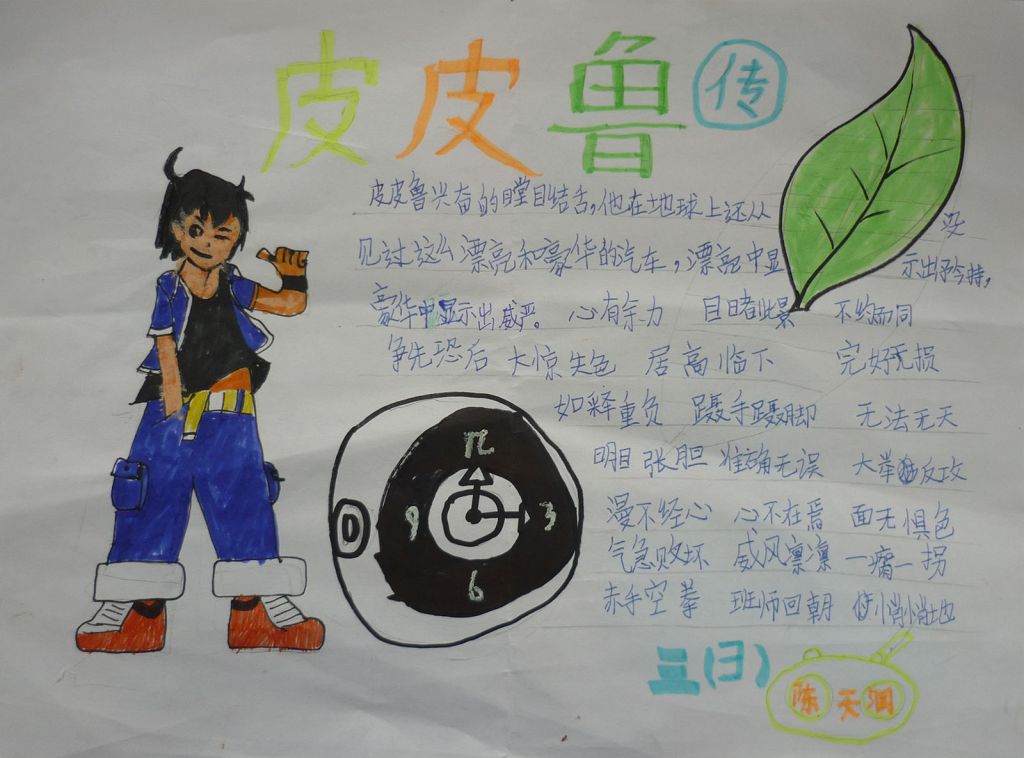 皮皮鲁传
皮皮鲁兴奋的瞠目结舌,他在地球上还从没
见过这么漂亮和豪华的汽车,漂亮中显示出矜持,
豪华中显示出威严。 心有余力 目睹此景 不约而同
争先恐后 大惊失色 居高临下 完好无损
如释重负 蹑手蹑脚 无法无天
明目张胆 准确无误 大举反攻
漫不经心 心不在焉 面无惧色
气急败坏 威风凛凛 一瘸一拐
赤手空拳 班师回朝 悄悄地
3
6
9
三(3)
陈天润